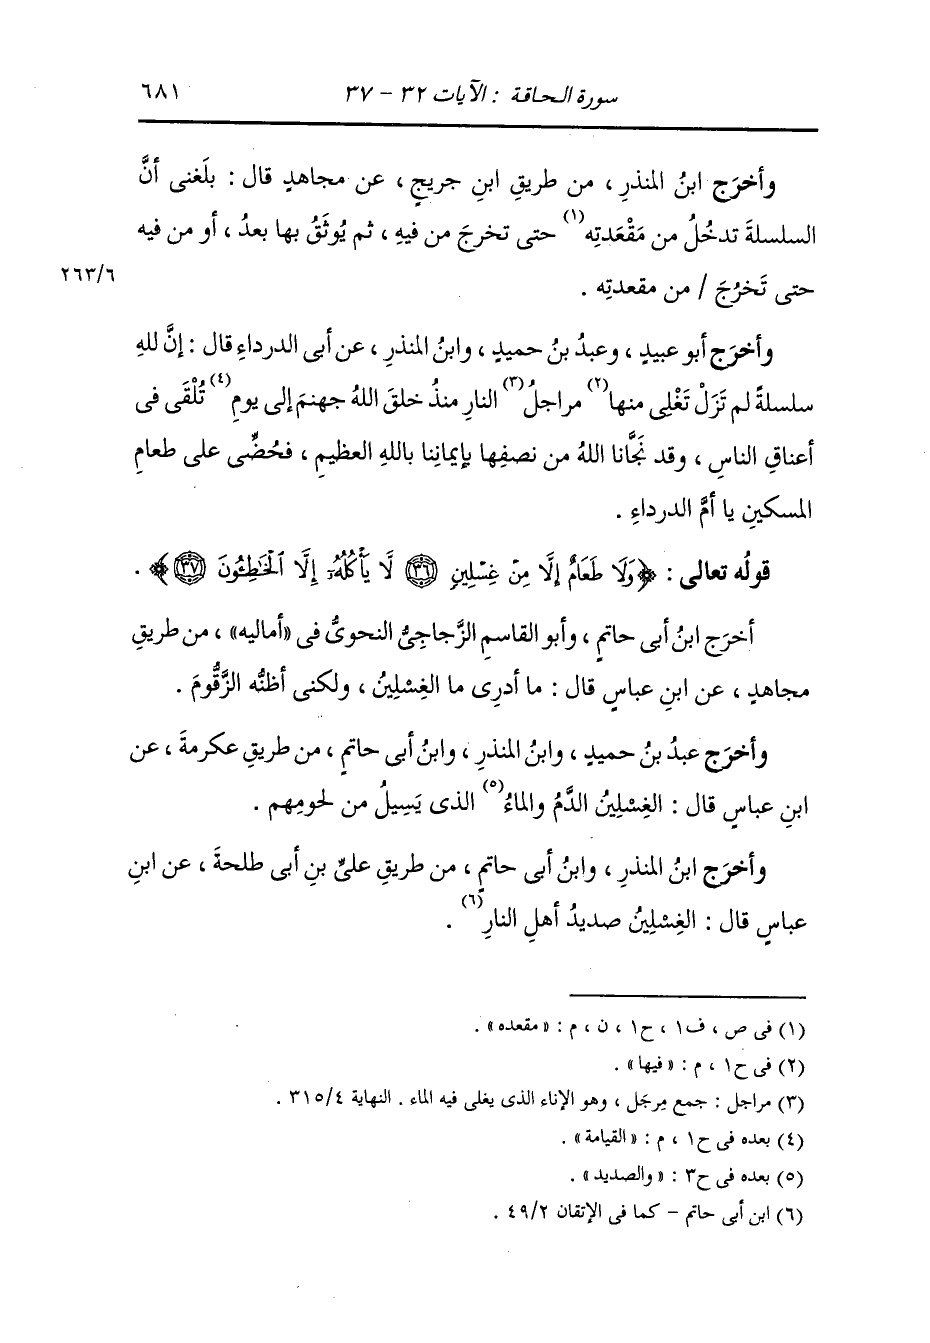 سورة الحاقة : الآيات ٣٢ - ٣٧ ٦٨١
وأخرَج ابنُ المنذرِ ، من طريقِ ابنِ جريجٍ ، عن مجاهدٍ قال : بلَغنى أنَّ
السلسلةَ تدخُلُ من مَقْعَدتِه(١) حتى تخرجَ من فيهِ ، ثم يُوثَقُ بها بعدُ ، أو من فيه
٢٦٣/٦
حتى تَخرُجَ / من مقعدتِه .
وأخرَج أبو عبيدٍ ، وعبدُ بنُ حميدٍ ، وابنُ المنذرِ ، عن أبى الدرداءِ قال : إنَّ للهِ
سلسلةً لم تَزَلْ تَغْلِى منها(٢) مراجلُ(٣) النارِ منذُ خلقَ اللهُ جهنمَ إلى يومِ(٤) تُلْقَى فى
أعناقِ الناسِ ، وقد نَجَّانا اللهُ من نصفِها بإيمانِنا باللهِ العظيمِ ، فحُضِّى على طعامِ
المسكينِ يا أمَّ الدرداءِ .
قولُه تعالى : ﴿وَلَا طَعَامٌ إِلَّا مِنْ غِسْلِينٍ ٣٦ لَّا يَأْكُلُهُۥٓ إِلَّا ٱلْخَـٰطِـُٔونَ ٣٧﴾ .
أخرَج ابنُ أبى حاتمٍ ، وأبو القاسمِ الزَّجاجِىُّ النحوىُّ فى «أماليه» ، من طريقِ
مجاهدٍ ، عن ابنِ عباسٍ قال : ما أدرِى ما الغِسْلِينُ ، ولكنى أظنُّه الزَّقُّومَ .
وأخرَج عبدُ بنُ حميدٍ ، وابنُ المنذرِ ، وابنُ أبى حاتمٍ ، من طريقِ عكرمةَ ، عن
ابنِ عباسٍ قال : الغِسْلِينُ الدَّمُ والماءُ(٥) الذى يَسِيلُ من لحومِهم .
وأخرَج ابنُ المنذرِ ، وابنُ أبى حاتمٍ ، من طريقِ علىِّ بنِ أبى طلحةَ ، عن ابنِ
عباسٍ قال : الغِسْلِينُ صديدُ أهلِ النارِ(٦) .
(١) فى ص ، ف١ ، ح١ ، ن ، م : «مقعده» .
(٢) فى ح١ ، م : «فيها» .
(٣) مراجل : جمع مِرجَل ، وهو الإناء الذى يغلى فيه الماء . النهاية ٣١٥/٤ .
(٤) بعده فى ح١ ، م : «القيامة» .
(٥) بعده فى ح٣ : «والصديد» .
(٦) ابن أبى حاتم - كما فى الإتقان ٤٩/٢ .